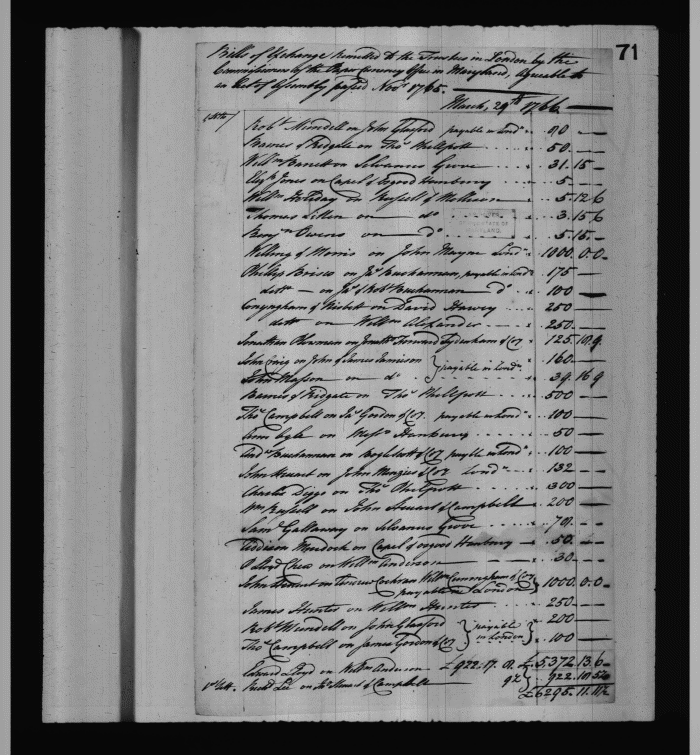 71
Bills of Exchange remitted to the Trustees in London by the
Commissioners of the Paper Currency Office in Maryland, agreeable to
an Act of Assembly passed Nov.r 1765.
March, 29th 1766
Rob.t Mundell on John Glasford payable in Lond.n 90
Barnes & Ridgate on Tho.s Philpott 50
Will.m Barrett on Silvanus Grove 31.15
Jones on Capel & Osgood Hanbury 5
Will.m Holiday on Russell & Molleson 5.12.6
Thomas on d.o 3.15.6
Benj.n Owens on d.o 5.15
& Morris on John Mayne Lond.n 1000.0.0
Phillip Briscoe on Ja.s Buchannan, payable in Lond.n 175
ditto on Ja.s & Rob.t Buchannan d.o 100
Conyngham & Nesbitt on David Harvey 250
ditto on Will.m Alexander 250
Jonathan Plowman on Jonath.n Forward Sydenham & Co.y 125.10.9
John Craig on John & James Jamieson } payable in Lond.n 160
John Masson on d.o 39.16.9
Barnes & Ridgate on Tho.s Philpott 500
Tho.s Campbell on Ja.s Gordon & Co.y payable in Lond.n 100
on Mess.rs Hanbury 50
And.w Buchannan on & Co.y payable in Lond.n 100
John Stewart on John Menzies & Co.y Lond.n 132
Charles Diggs on Tho.s Philpott 300
Wm Russell on John Stewart & Campbell 200
Sam.l Gallaway on Silvanus Grove 70
Addison Murdock on Capel & Osgood Hanbury 50
P Lloyd Chew on Will.m Anderson 30
John Stewart on Cochran Will.m Cunningham & Co.y } 1000.0.0
payable in London
James Hunter on Will.m Hunter 250
Rob.t Mundell on John Glasford } payable 200
Tho.s Campbell on James Gordon & Co.y } in London 100
£5372.13.6
Edward Lloyd on Will.m Anderson £922.17.0
Lee on Jn.o Stewart & Campbell
£6295.11.11½